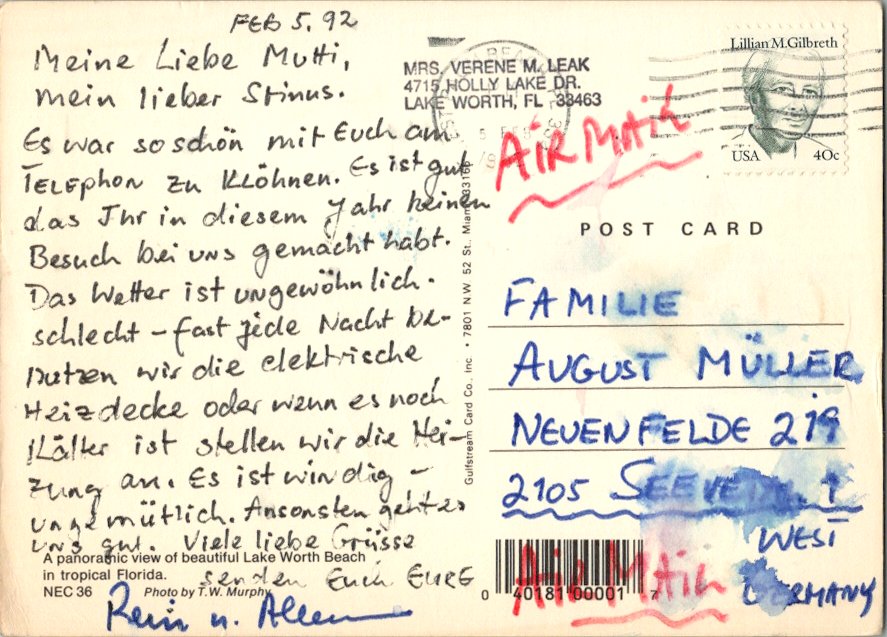 FEB 5, 92
Meine Liebe Mutti,
mein lieber Stinus.
Es war so schön mit Euch am
TELEPHON zu KLÖHNEN. Es ist gut
das Ihr in diesem Jahr keinen
Besuch bei uns gemacht habt.
Das Wetter ist ungewöhnlich
schlecht – fast jede Nacht be-
nutzen wir die elektrische
Heizdecke oder wenn es noch
Kälter ist stellen wir die Hei-
zung an. Es ist windig –
ungemütlich. Ansonsten geht es
uns gut. Viele liebe Grüsse
senden Euch EURE
A panoramic view of beautiful Lake Worth Beach
in tropical Florida.
NEC 36 Photo by T.W. Murphy
Gulfstream Card Co., Inc. • 7801 N.W. 52 St., Miami 33166
MRS. VERENE M. LEAK
4715 HOLLY LAKE DR.
LAKE WORTH, FL 33463
5 FEB
Lillian M. Gilbreth
USA 40c
AIR MAIL
POST CARD
FAMILIE
AUGUST MÜLLER
NEUENFELDE 219
2105 SEEVETAL 1
WEST
GERMANY
AIR MAIL
0 40181 00001 7